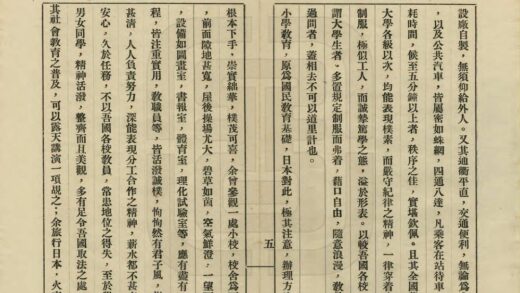 設廠自製,無須仰給外人。又其通衢平直,交通便利,無論爲
,以及公共汽車,皆屬密如蛛網,四通八達,凡乘客在站待車
耗時間,候至五分鐘以上者,秩序之佳,實堪欽佩。且其全國
大學各級以次,均能表現樸素,而嚴守紀律之精神,一律穿着
制服,極似工人,而誠摯篤學之態,溢於形表。以較吾國各校
謂大學生者。多置規定制服而弗着,藉口自由,隨意浪漫,教
過問者,蓋相去不可以道里計也。
小學教育,原爲國民教育基礎,日本對此,極其注意,辦理方
五
根本下手。崇實絀華,樸茂可喜,余曾參觀一處小校,校舍爲
,前面隙地甚寬,屋後操場尤大,碧草如茵,空氣鮮澄,一望
,設備如圖畫室,書報室,體育室,理化試驗室等,應有盡有
程,皆注重實用,教職員等,皆活潑誠樸,恂恂然有君子風,
甚清,人人負責努力,深能表現分工合作之精神,薪水都不甚
安心,久於任務,不以吾國各校教員,常患地位之得失,至於
男女同學,精神活潑,整齊而且美觀,多有足令吾國取法之處
其社會教育之普及,可以露天講演一項覘之;余旅行日本,火